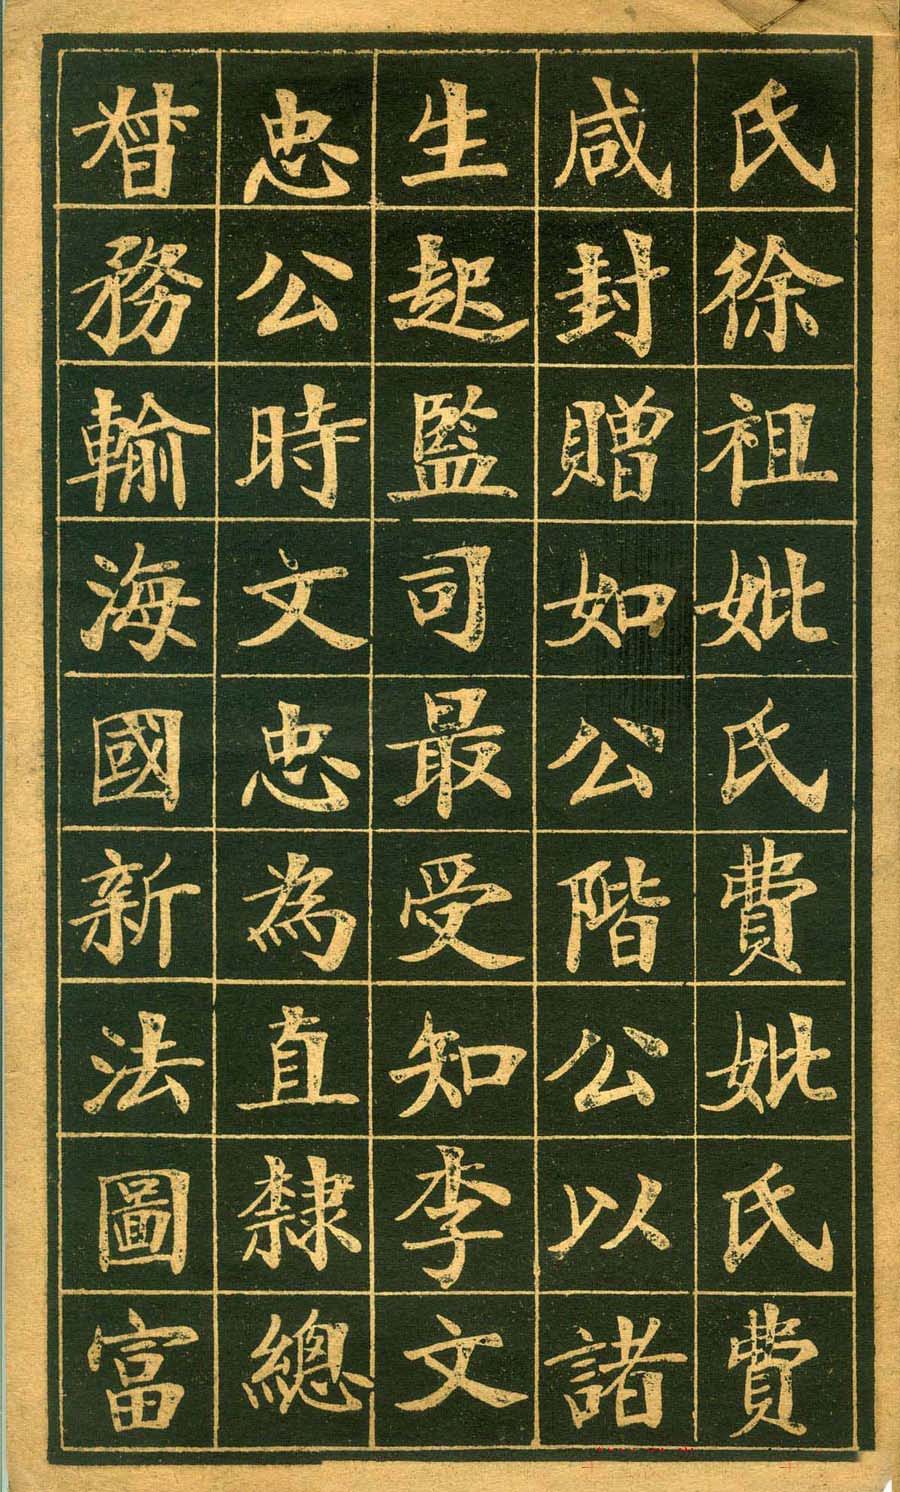 氏徐祖妣氏費妣氏費
咸封贈如公階公以諸
生起監司最受知李文
忠公時文忠為直隸總
督務輸海國新法圖富